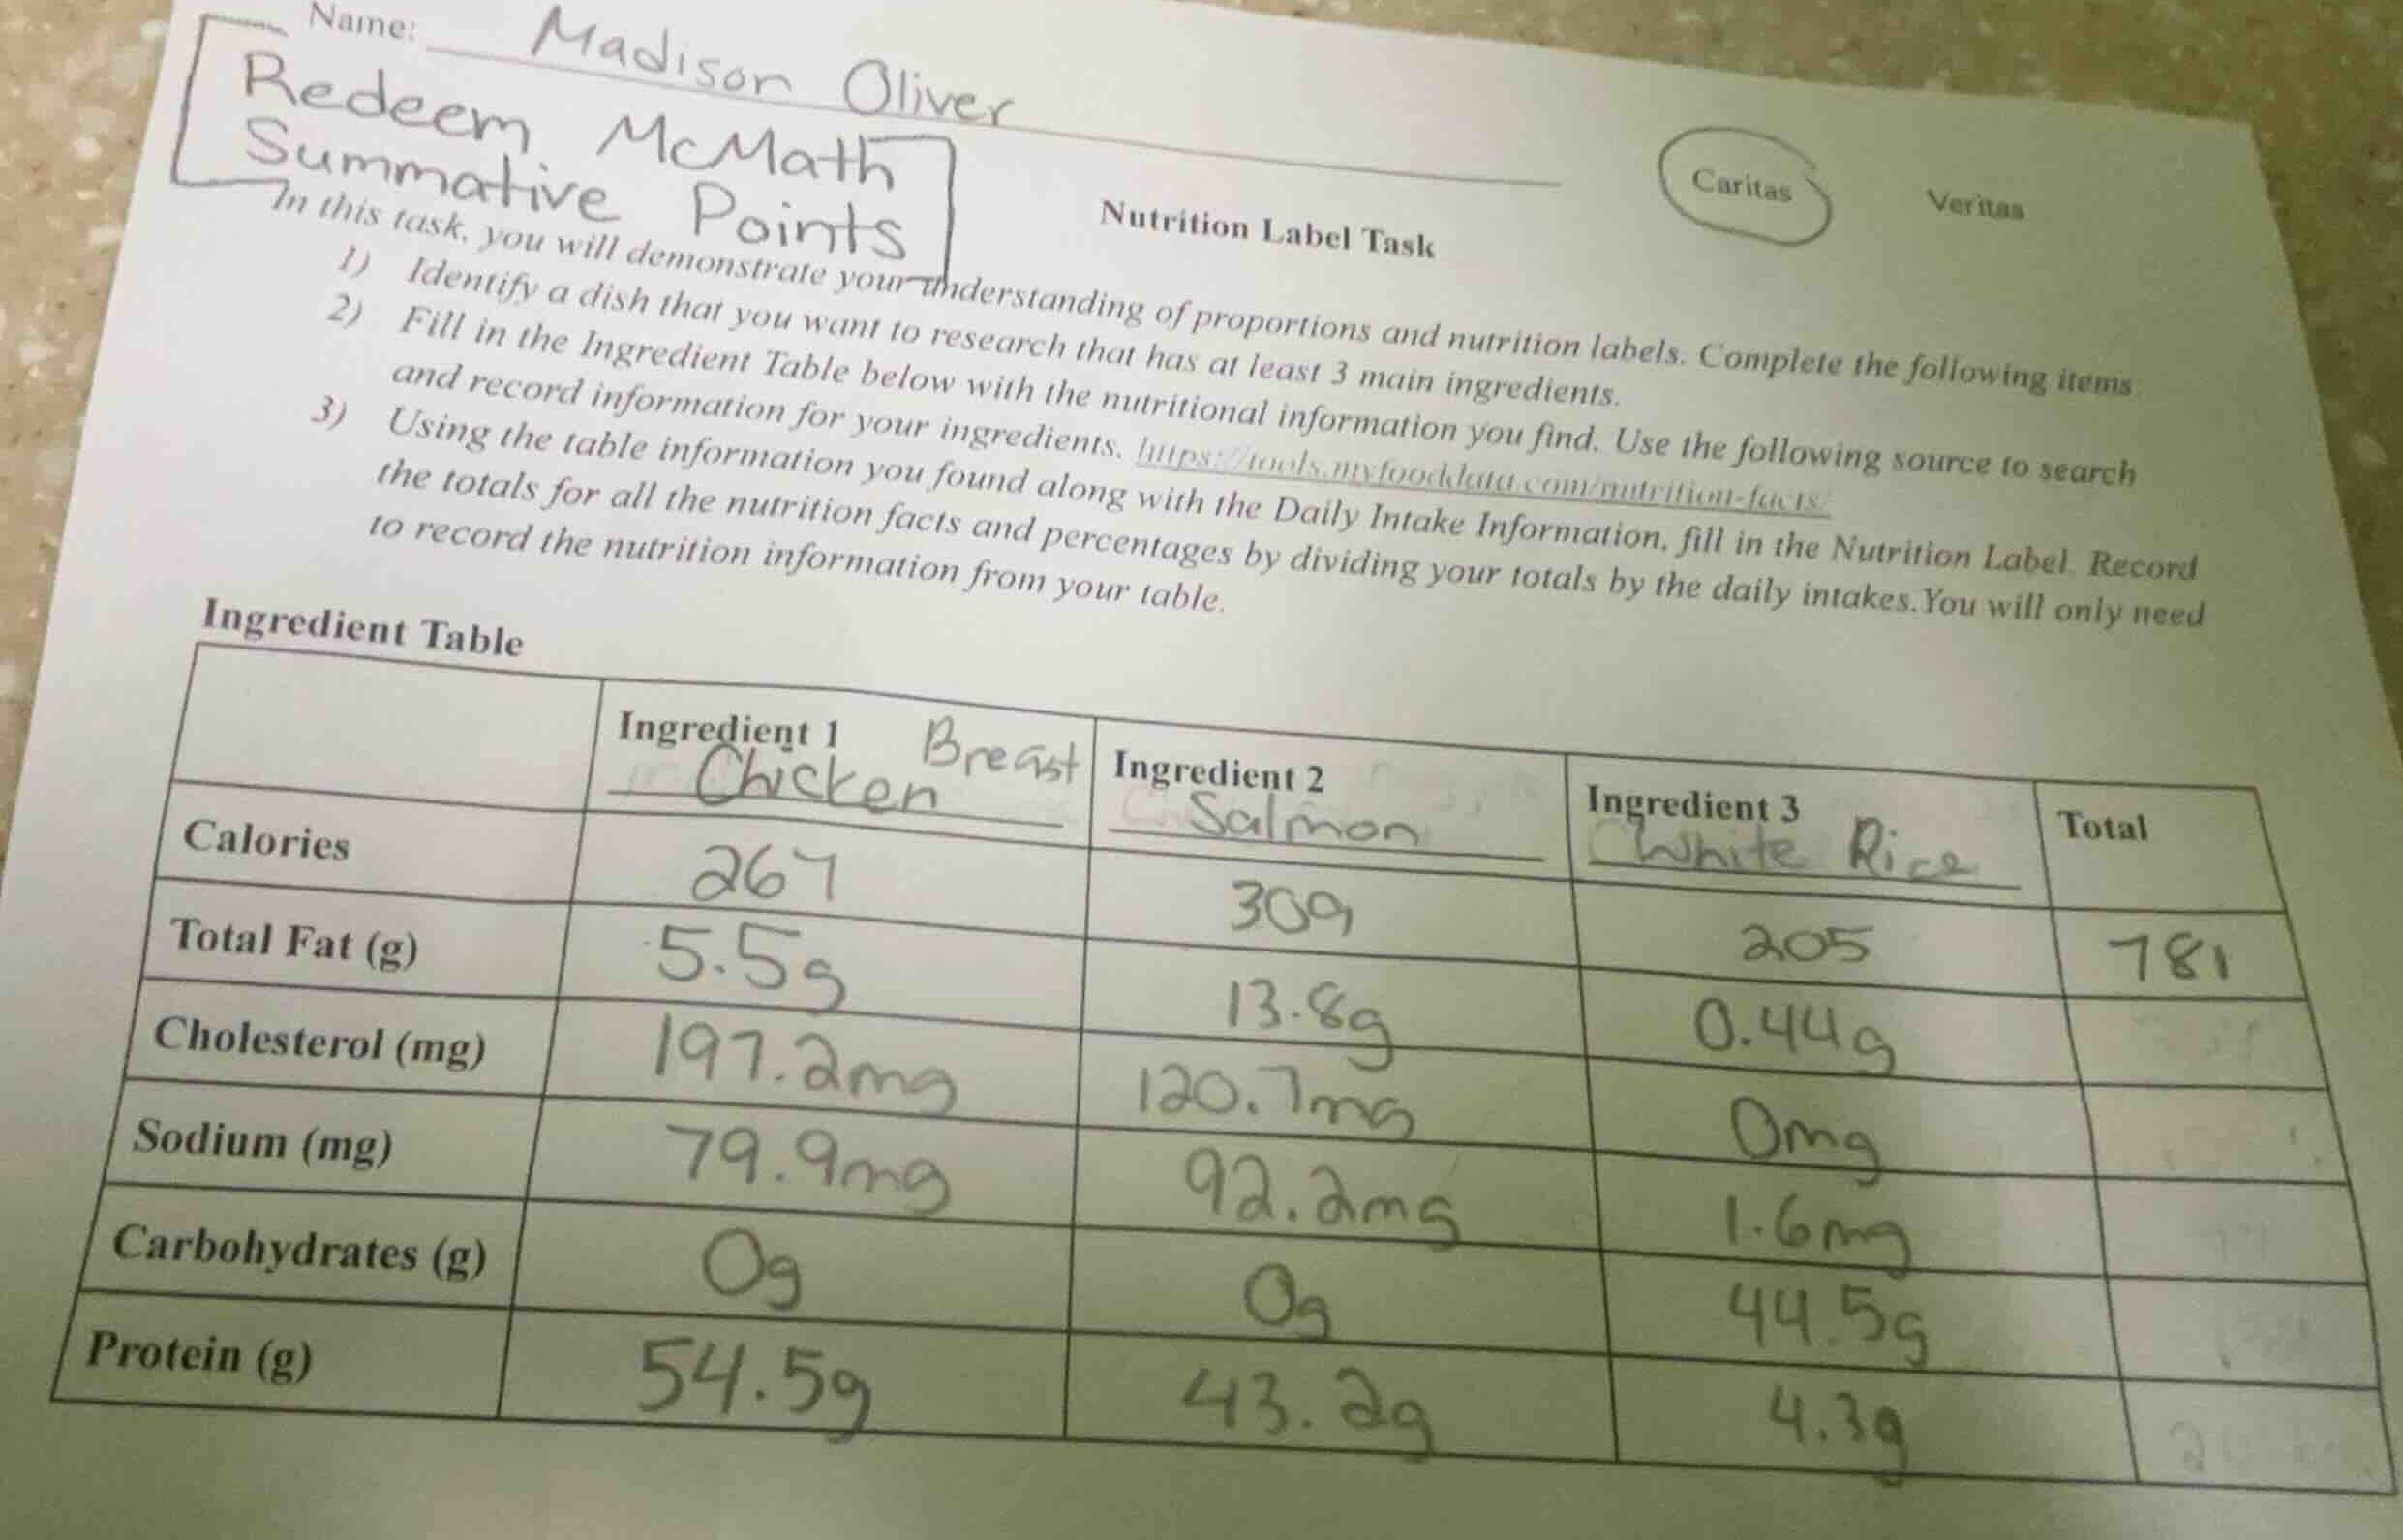 Name: Madison Oliver
Redeem McMath
Summative Points
Caritas Veritas
Nutrition Label Task
In this task, you will demonstrate your understanding of proportions and nutrition labels. Complete the following items
1) Identify a dish that you want to research that has at least 3 main ingredients.
2) Fill in the Ingredient Table below with the nutritional information you find. Use the following source to search
and record information for your ingredients. https://tools.myfooddata.com/nutrition-facts/
3) Using the table information you found along with the Daily Intake Information, fill in the Nutrition Label. Record
the totals for all the nutrition facts and percentages by dividing your totals by the daily intakes.You will only need
to record the nutrition information from your table.
Ingredient Table
Ingredient 1 Breast Ingredient 2 Ingredient 3 Total
Chicken Salmon White Rice
Calories 267 309 205 781
Total Fat (g) 5.5g 13.8g 0.44g
Cholesterol (mg) 197.2mg 120.7mg 0mg
Sodium (mg) 79.9mg 92.2mg 1.6mg
Carbohydrates (g) 0g 0g 44.5g
Protein (g) 54.5g 43.2g 4.3g